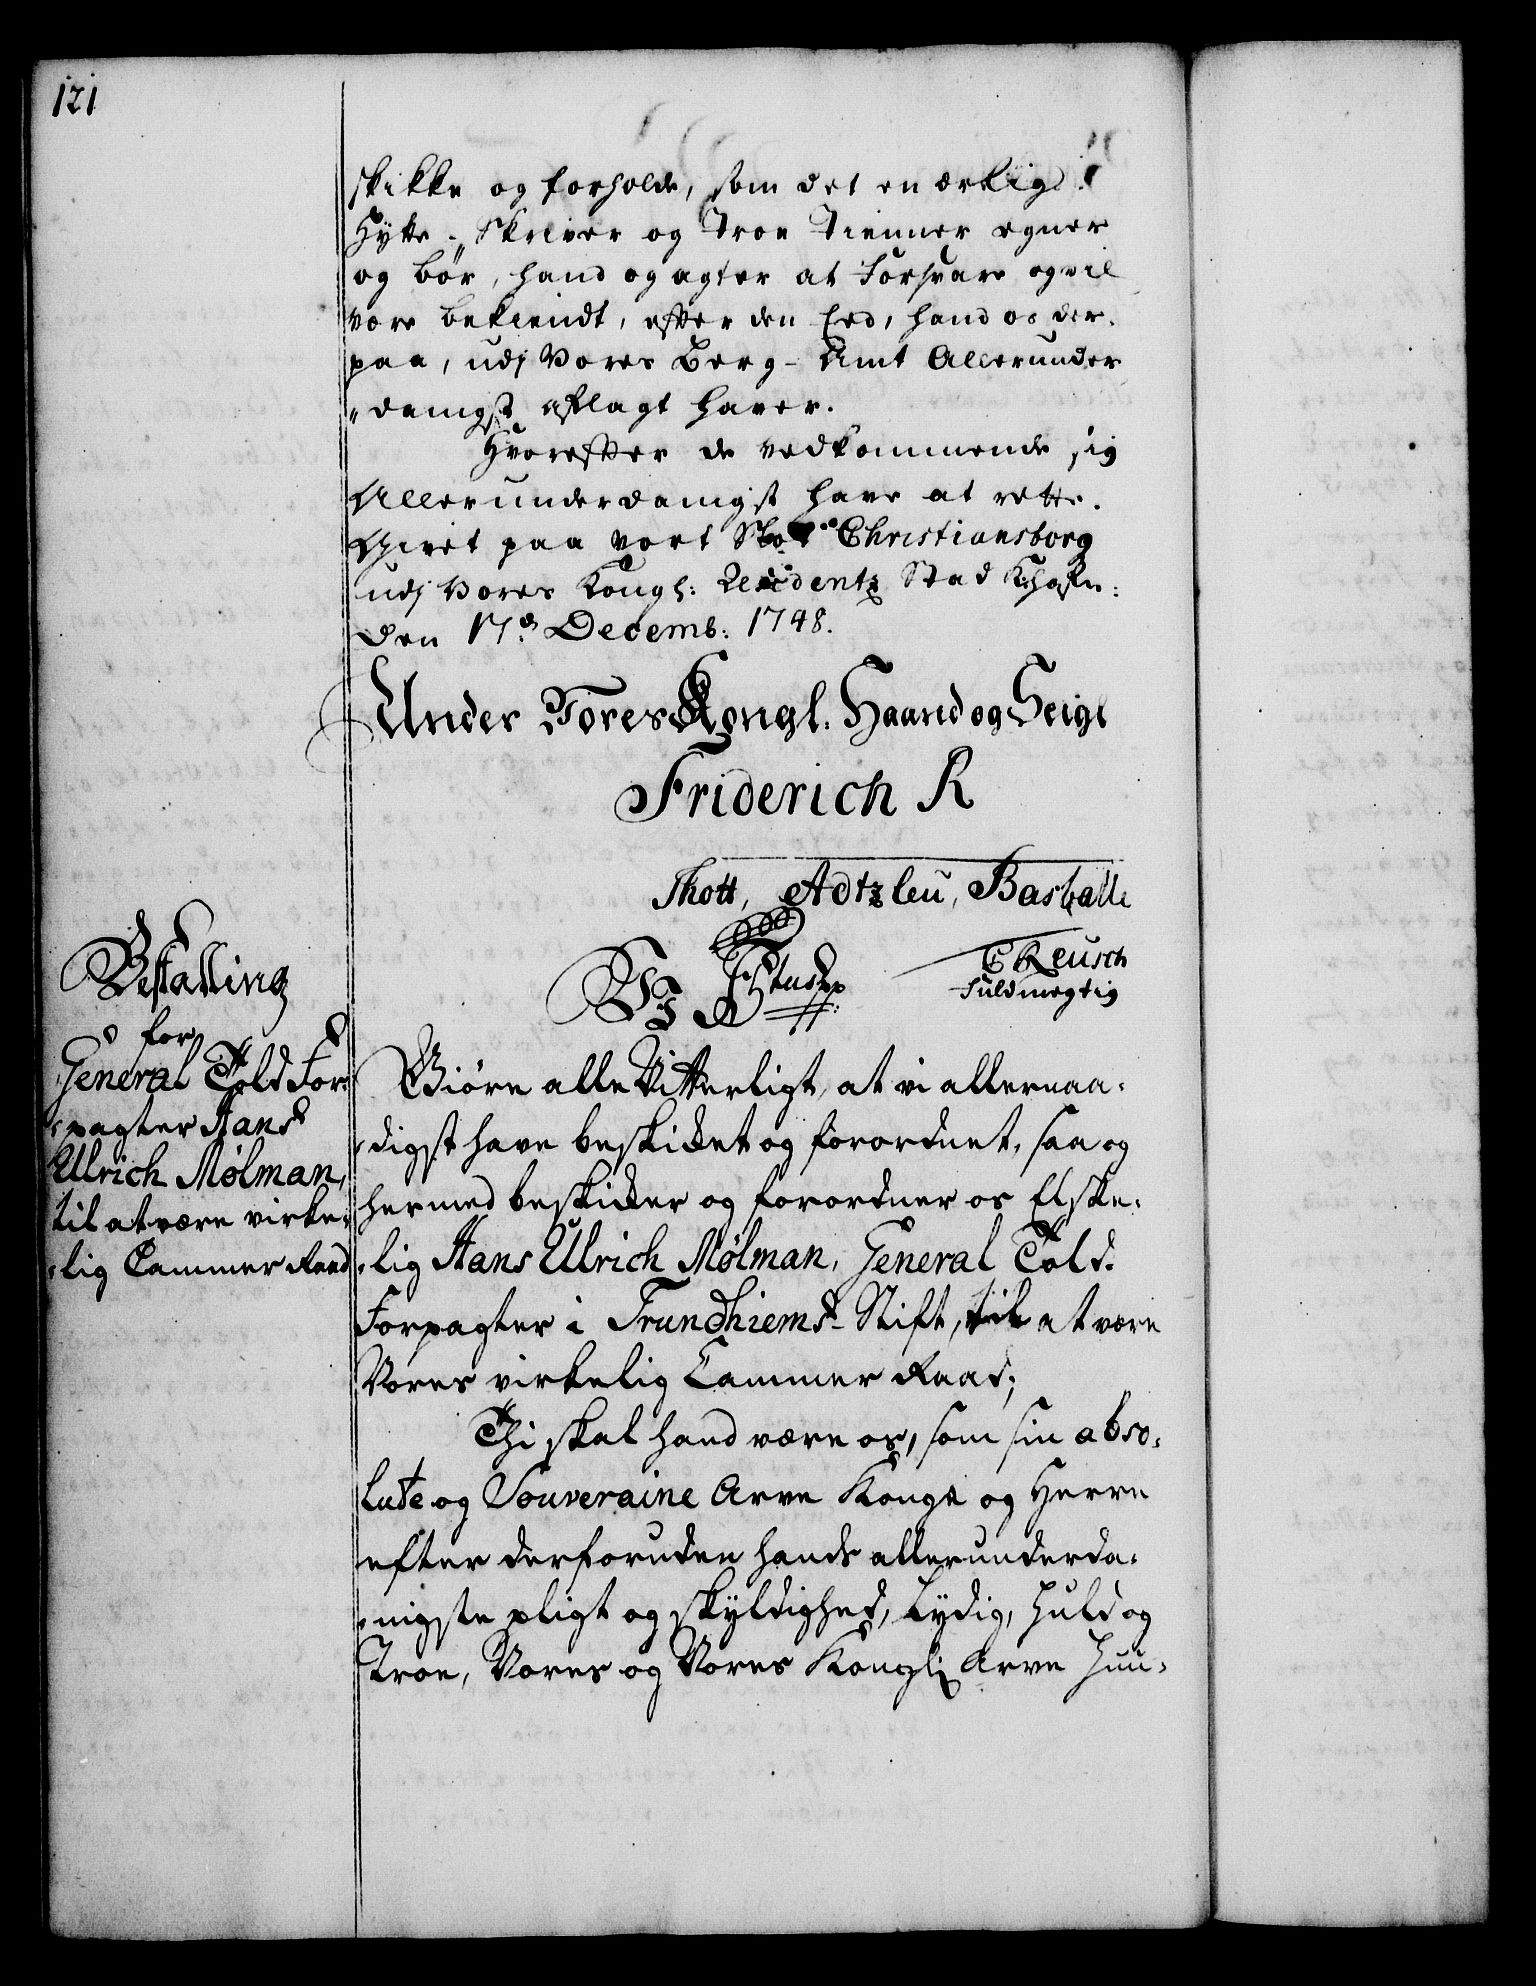 121
skikke og forholde, som det en ærlig
Hytte-Skriver og Troe Tienner egner
og bør, hand og agter at Forsvare og vil
være bekiendt, efter den Eed, hand os der-
paa, udj Vores Berg-Amt Allerunder
"danigst aflagt haver.
Hvorefter de vedkommende sig
Allerunderdanigst have at rette.
Givet paa vort Slot Christiansborg
udj Vores Kongl: Residentz Stad Kiøbhafn:
Den 17de Decemb: 1748.
Under Vores Kongl. Haand og Seigl
Friderich R
Thott, Adtzleu, Barballe
E Reusch
Fuldmegtig
Bestalling
for
General Told For-
-pagter Hans
Ulrich Mølman,
til at være virke-
-lig Cammer Raad
Vi F 5tus pp
Giøre alle Vitterligt, at vi allernaa-
-digst have beskicket og forordnet, saa og
hermed beskicker og forordner os Elske-
-lig Hans Ulrich Mølman, General Told-
Forpagter i Trundhiems Stift, til at være
Vores virkelig Cammer Raad;
Thi skal hand være os, som sin abso-
lute og Souveraine Arve Konge og Herre
efter derforuden hands allerunderda-
-nigste pligt og skyldighed, Lydig, huld og
Troe, Vores og Vores Kongl: Arve Huu-